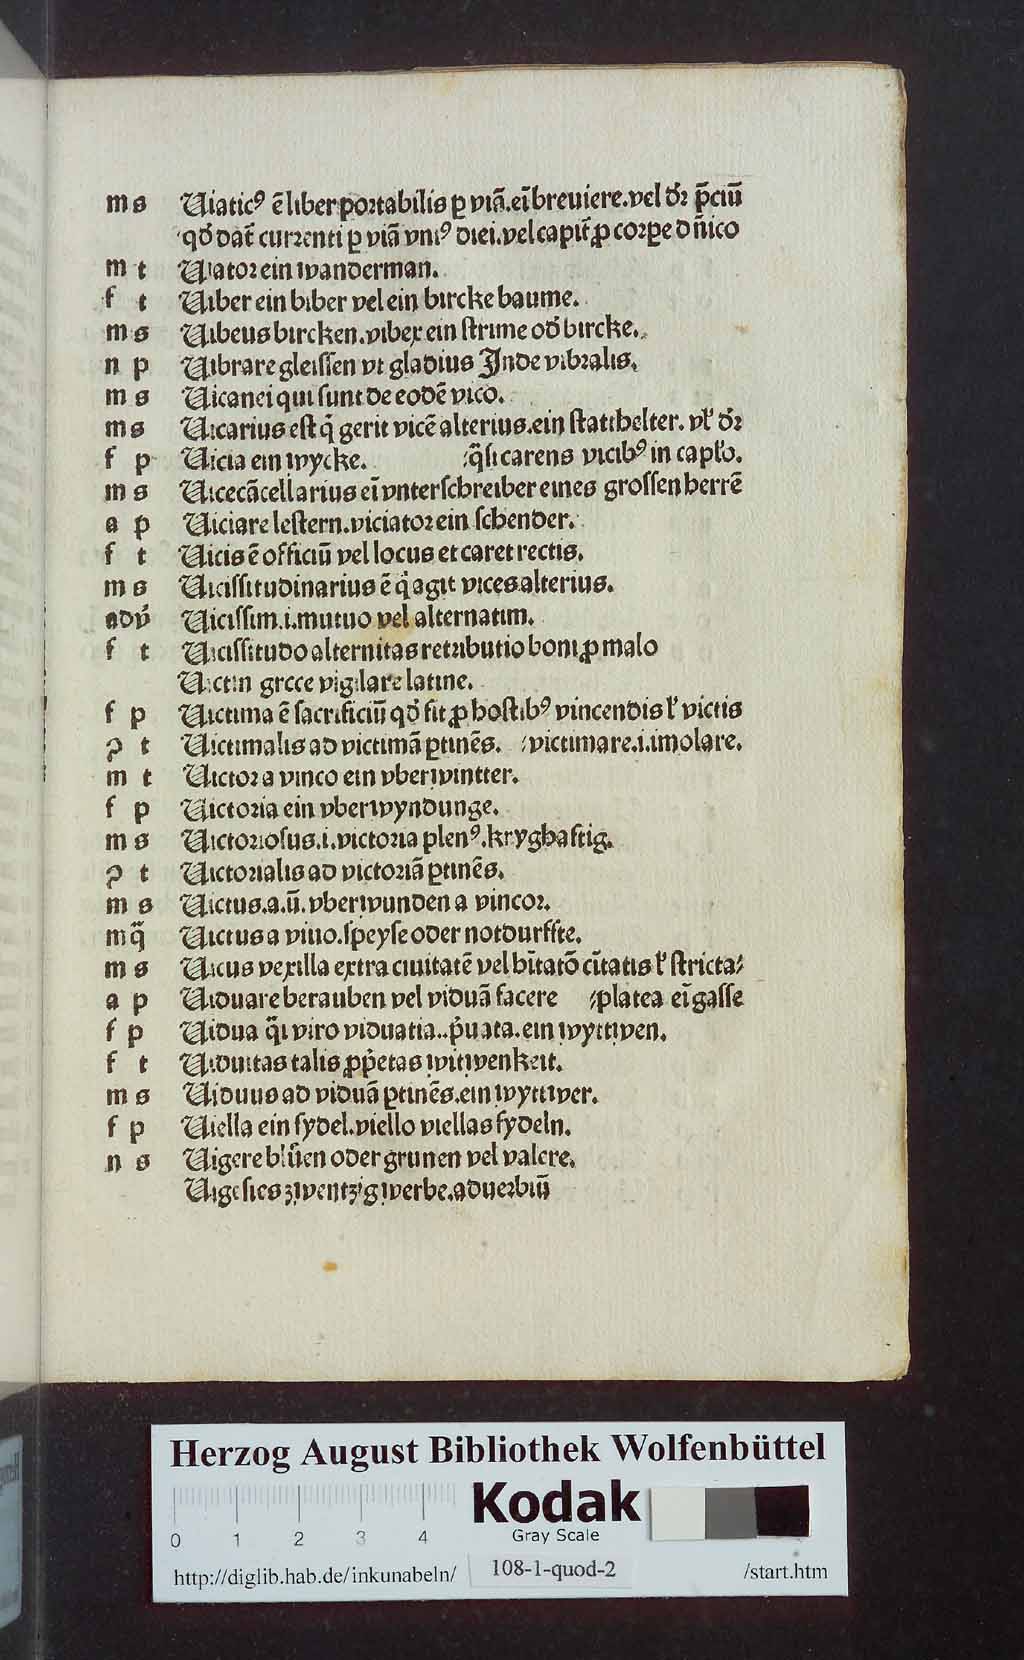 m s Uiaticꝰ ē liber portabilis ꝑ viā. eī breuiere. vel dr̄ p̄ciū
qd̓ dat̄ currenti ꝑ viā vniꝰ diei. vel capit̄ ꝓ corꝑe dn̄ico
m t Uiator ein wanderman.
f t Uiber ein biber vel ein bircke baume.
m s Uibeus bircken. vibex ein strime od̓ bircke.
n p Uibrare gleissen vt gladius Inde vibralis.
m s Uicanei qui sunt de eodē vico.
m s Uicarius est q̇ gerit vicē alterius. ein statthelter. vl̓ dr̄
f p Uicia ein wycke. q̄si carens vicibꝰ in capl̓o.
m s Uicecācellarius eī vnterschreiber eines grossen herrē
a p Uiciare lestern. viciator ein schender.
f t Uicis ē officiū vel locus et caret rectis.
m s Uicissitudinarius ē q̇ agit vices alterius.
adv̓ Uicissim .i. mutuo vel alternatim.
f t Uicissitudo alternitas retributio boni ꝓ malo
Uictin grece vigilare latine.
f p Uictima ē sacrificiū qd̓ fit ꝓ hostibꝰ vincendis l̓ victis
ꝯ t Uictimalis ad victimā ꝑtinēs. victimare .i. imolare.
m t Uictor a vinco ein vberwintter.
f p Uictoria ein vberwyndunge.
m s Uictoriosus .i. victoria plenꝰ. kryghaftig.
ꝯ t Uictorialis ad victoriā ꝑtinēs.
m s Uictus .a. ū. vberwunden a vincor.
m q̄ Uictus a viuo. speyse oder notdurfte.
m s Uicus vexilla extra ciuitatē vel hītatō cītatis l̓ stricta⸗
a p Uiduare berauben vel viduā facere platea eī gasse
f p Uidua q̄si viro viduatia .. p̓uata. ein wyttwen.
f t Uiduitas talis ꝓp̓etas witwenkeit.
m s Uiduus ad viduā ꝑtinēs. ein wyttwer.
f p Uiella ein fydel. viello viellas fydeln.
n s Uigere blůen oder grunen vel valere.
Uigesies zwentzig werbe. aduerbiū
Herzog August Bibliothek Wolfenbüttel
0 1 2 3 4
Kodak
Gray Scale
http://diglib.hab.de/inkunabeln/ 108-1-quod-2 /start.htm